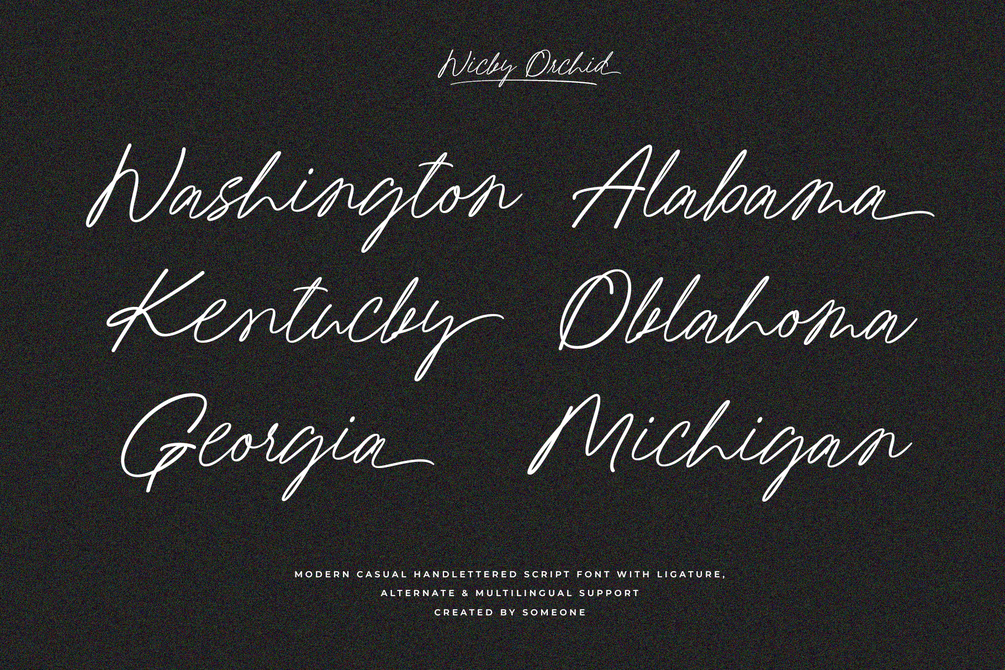 Wicky Orchid
Washington Alabama
Kentucky Oklahoma
Georgia Michigan
MODERN CASUAL HANDLETTERED SCRIPT FONT WITH LIGATURE,
ALTERNATE & MULTILINGUAL SUPPORT
CREATED BY SOMEONE